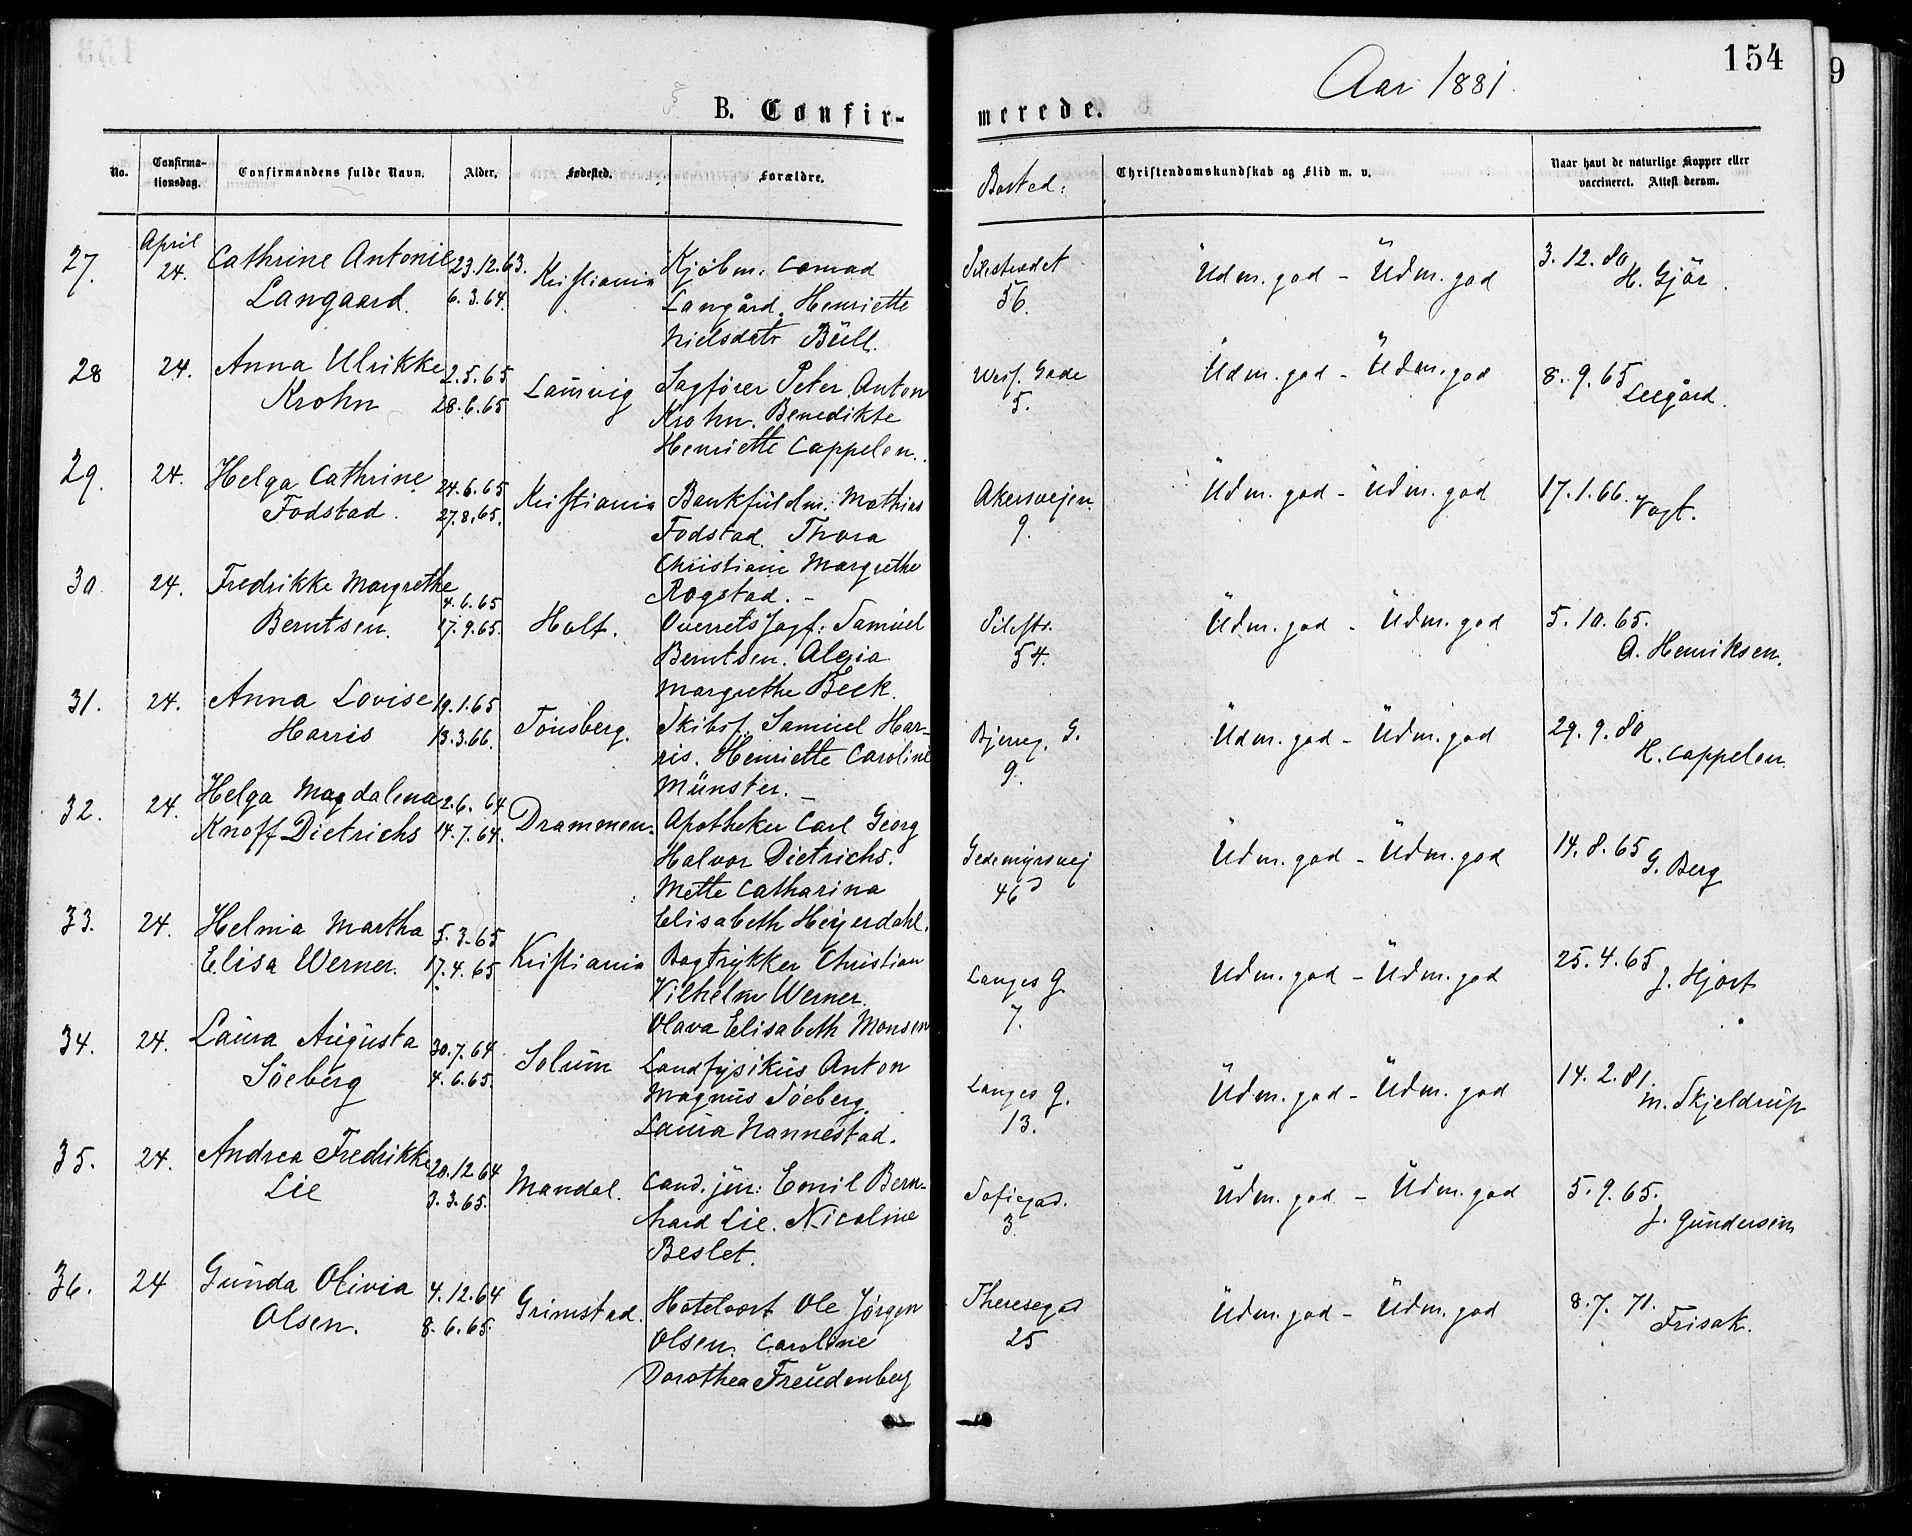 154
9
Aar 1881.
B. Confir-
merede.
No.
Confirma-
tionsdag.
Confirmandens fulde Navn.
Alder.
Fødested.
Forældre.
Bosted:
Christendomskundskab og Flid m. v.
Naar havt de naturlige Kopper eller
vaccineret. Attest derom.
27. April 24. Cathrine Antonie 23.12.63. Kristiania Kjöbm. Conrad Pilestrædet Üdm. god - Üdm. god 3.12.80
Langaard. 6.3.64. Langård. Henriette 56. H. Gjör.
Nielsdatr Büll.
28 24. Anna Ulrikke 2.5.65 Laurvig Sagförer Peter Anton Wess. Gade Üdm. god - Üdm. god 8.9.65
Krohn 28.6.65 Krohn. Benedikte 5. Leegård.
Henriette Cappelen.
29. 24. Helga Cathrine 24.6.65 Kristiania Bankfuldm. Mathias Akersvejen. Üdm. god - Üdm. god 17.1.66. Vogt.
Fodstad. 27.8.65. Fodstad. Thora 9.
Christiane Margrethe
Rogstad. -
30. 24. Fredrikke Margrethe 4.6.65 Holt. Overrets sagf: Samüel Pilestr. Üdm. god - Üdm. god 5.10.65.
Berntsen. 17.9.65. Berntsen. Alexia 54. A. Henriksen.
Margrethe Beck.
31. 24. Anna Lovise 19.1.65 Tönsberg. Skibsf. Samüel Har- Bjerreg. G. Üdm. god - Üdm. god 29.9.80
Harris 13.3.66. ris. Henriette Caroline 9. H. Cappelen.
Münster. -
32. 24. Helga Magdalena 2.6.64 Drammen. Apotheker Carl Georg Gedemyrsvej Üdm. god - Üdm. god 14.8.65
Knoff Dietrichs 14.7.64. Halvor Dietrichs. 46 G. Berg
Mette Catharina
Elisabeth Heyerdahl.
33. 24. Helma Martha 5.3.65 Kristiania Bogtrykker Christian Langes G. Üdm. god - Üdm. god 25.4.65
Elisa Werner. 17.4.65 Vilhelm Werner. 7. J. Hjort
Olava Elisabeth Monsen
34. 24. Laura Augüsta 30.7.64 Solum Landfysiküs Anton Langes G. Üdm. god - Üdm. god 14.2.81.
Söeberg 4.6.65. Magnüs Söeberg. 13. M. Skjeldrup
Laura Nannestad.
35. 24. Andrea Fredrikke 20.12.64 Mandal. Cand. jür: Emil Bern- Sofiegad. Üdm. god - Üdm. god 5.9.65.
Lie 3.3.65. hard Lie. Nicoline 3. J. Gündersen
Beslet.
36. 24 Günda Olivia 4.12.64 Grimstad. Hotelvært Ole Jörgen Theresegad Üdm. god - Üdm. god 8.7.71.
Olsen. 8.6.65. Olsen. Caroline 25 Frisak.
Dorothea Freüdenberg